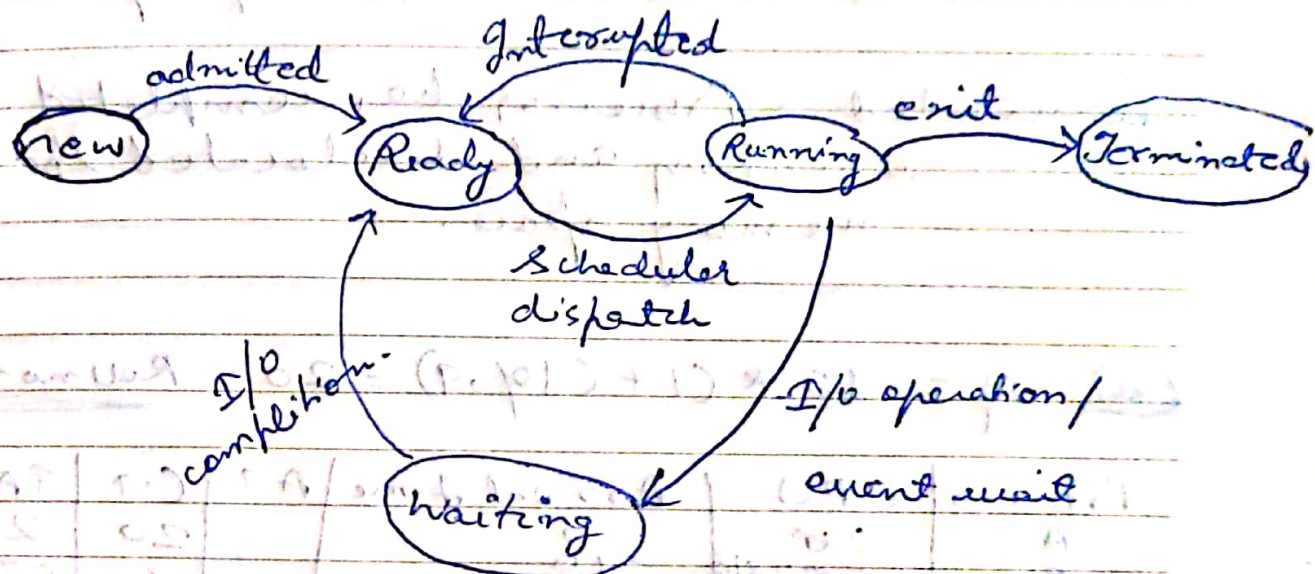 Interrupted
admitted
exit
new
Ready
Running
Terminated
Scheduler
dispatch
I/O
complition.
I/O operation/
event wait
Waiting